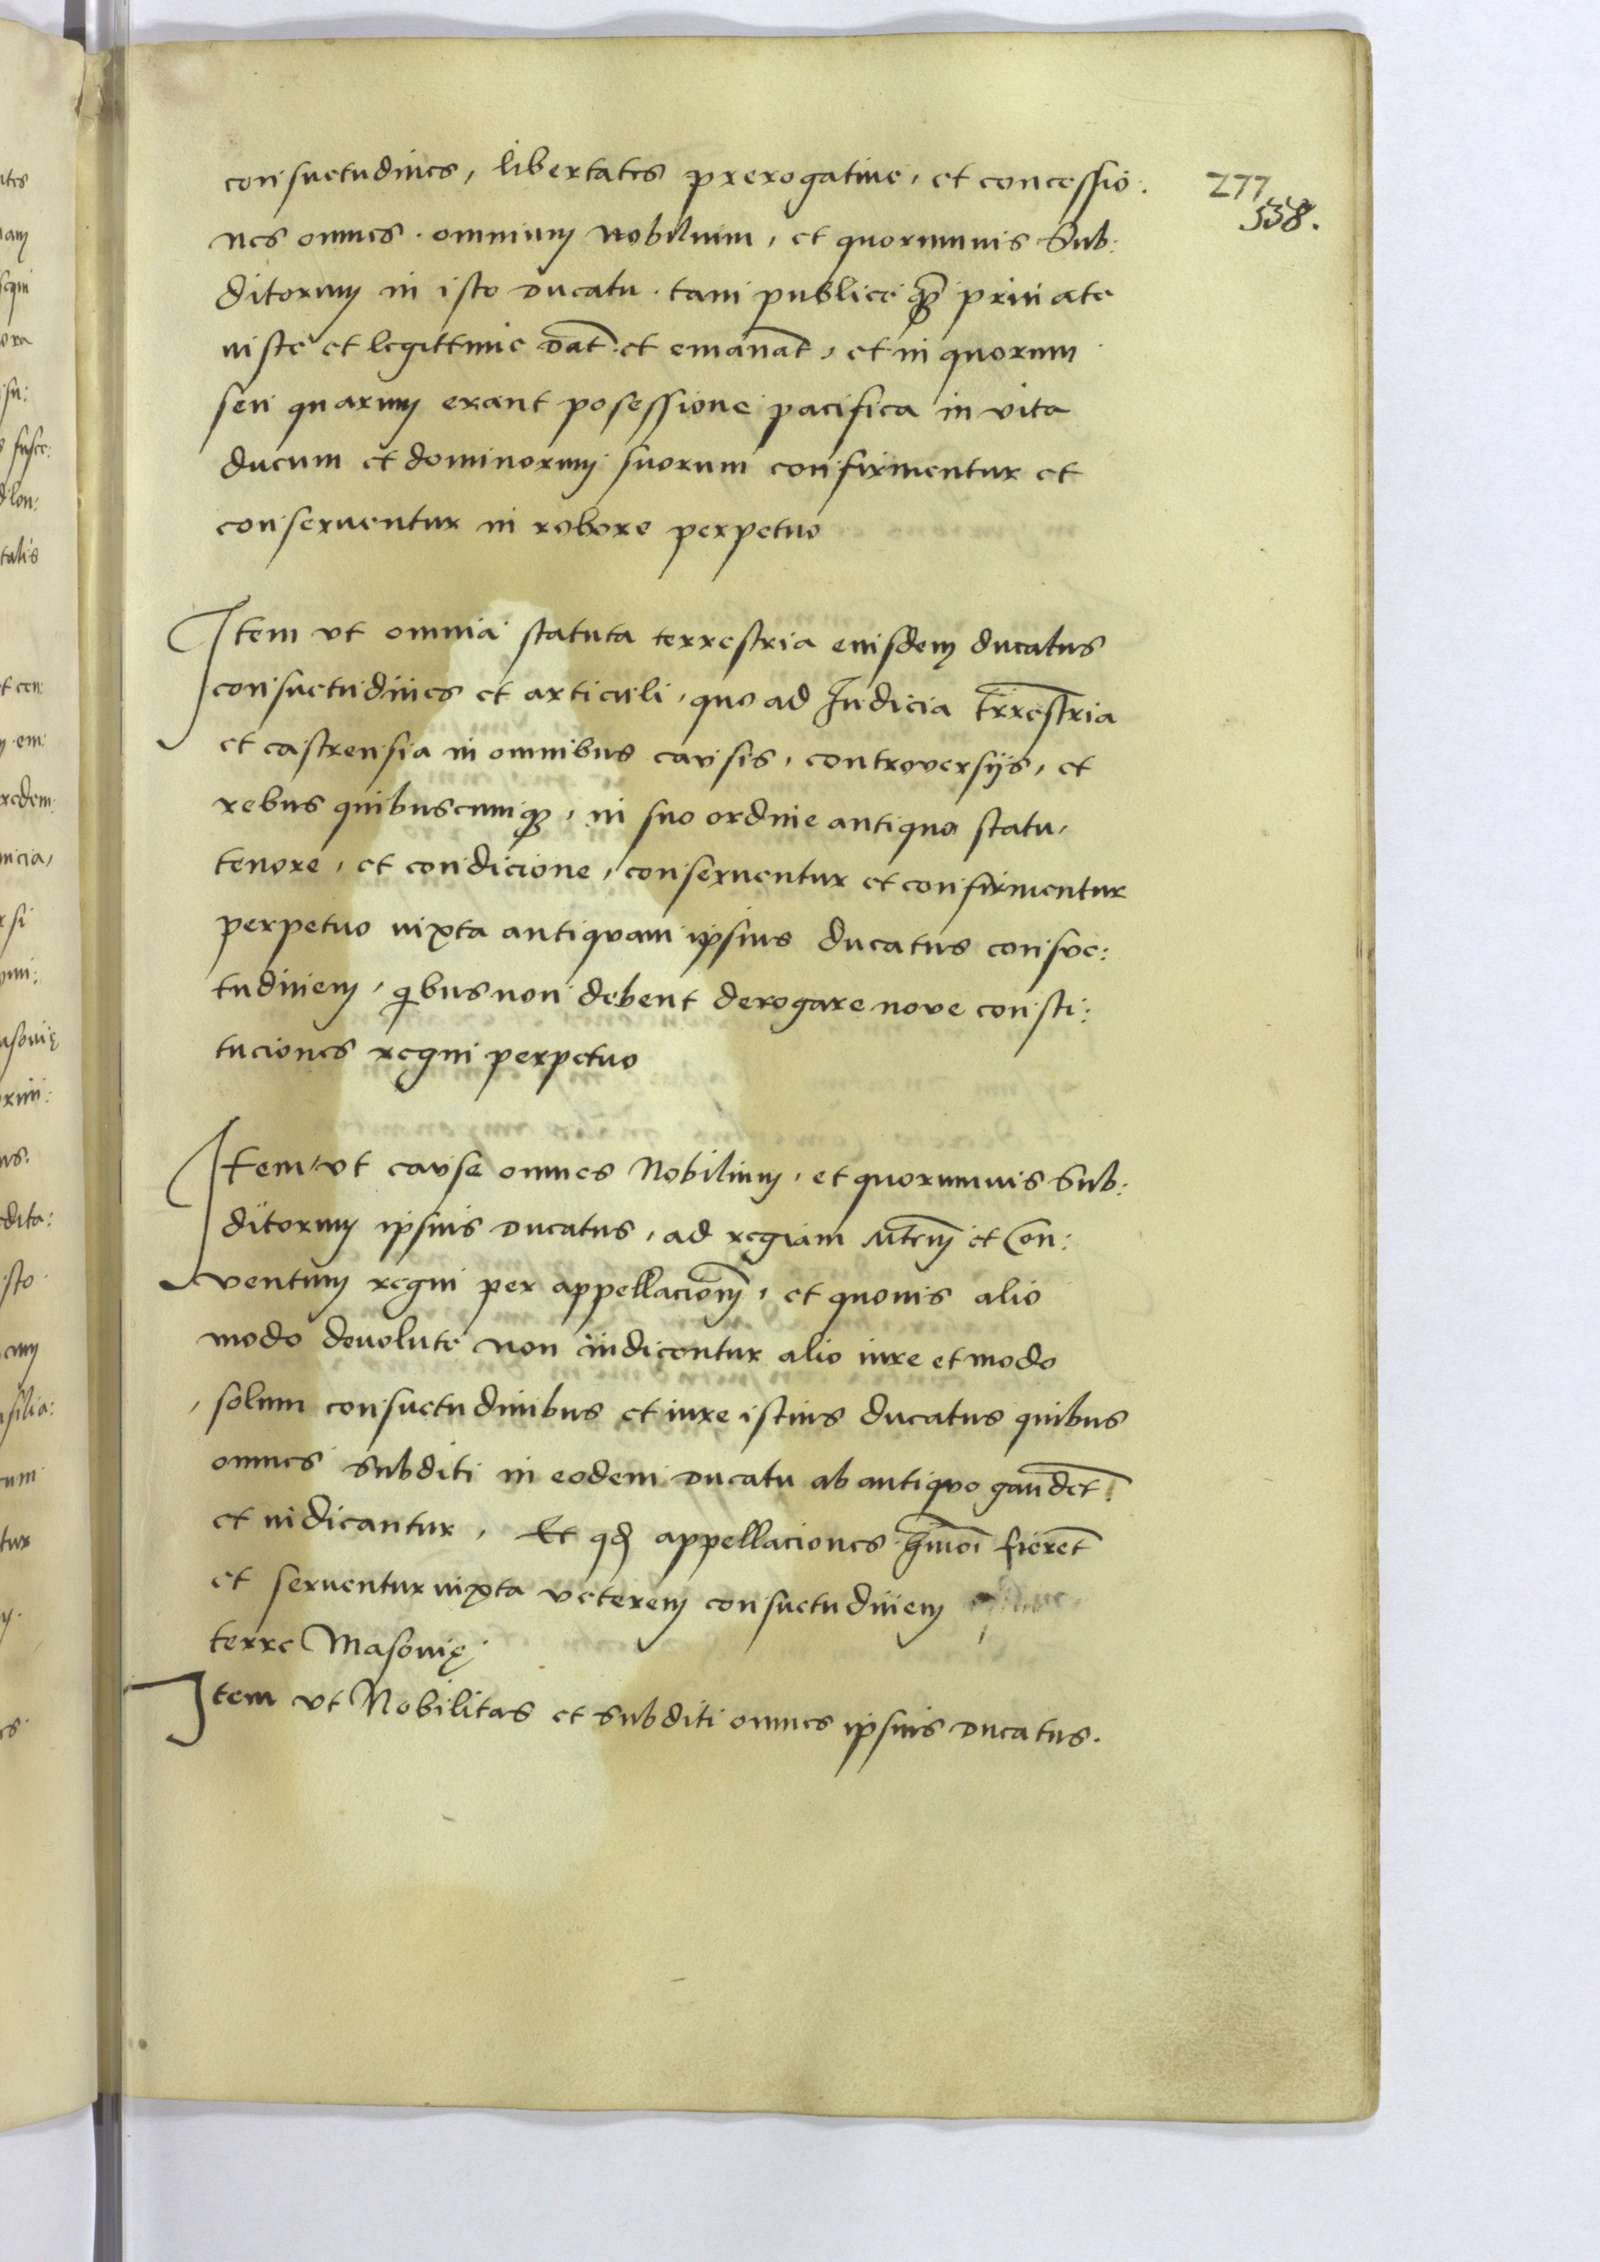 consuetudines, libertates prerogatiue, et concessio:
277
538.
nes omnes. omnium nobilium, et quorumuis Sub:
ditorum in isto ducatu. tam publice q̃ priuate
iuste et legittime dat̃. et emanat̃, et in quorum
seu quarum erant posessione pacifica in vita
ducum et dominorum suorum confirmentur et
conseruentur in robore perpetuo
Item vt omnia statuta terrestria eiusdem ducatus
consuetudines et articuli, quo ad Iudicia tr̃restria
et castrensia in omnibus causis, controversijs, et
rebus quibuscumq₃, in suo ordine antiquo statu,
tenore, et condicione, conseruentur et confirmentur
perpetuo iuxta antiquam ipsius ducatus consue:
tudinem, qibus non debent derogare nove consti:
tuciones regni perpetuo
Item, vt cause omnes Nobilium, et quorumuis Sub:
ditorum ipsius ducatus, ad regiam Mtẽm et Con:
ventum regni per appellacionẽm, et quouis alio
modo deuolute non iudicentur alio iure et modo
, solum consuetudinibus et iure istius ducatus quibus
omnes subditi in eodem ducatu ab antiquo gaudẽt
et iudicantur, Et qd appellaciones hmõi fierẽt
et seruentur iuxta veterem consuetudinem
terre Masouię.
Item vt Nobilitas et subditi omnes ipsius ducatus.